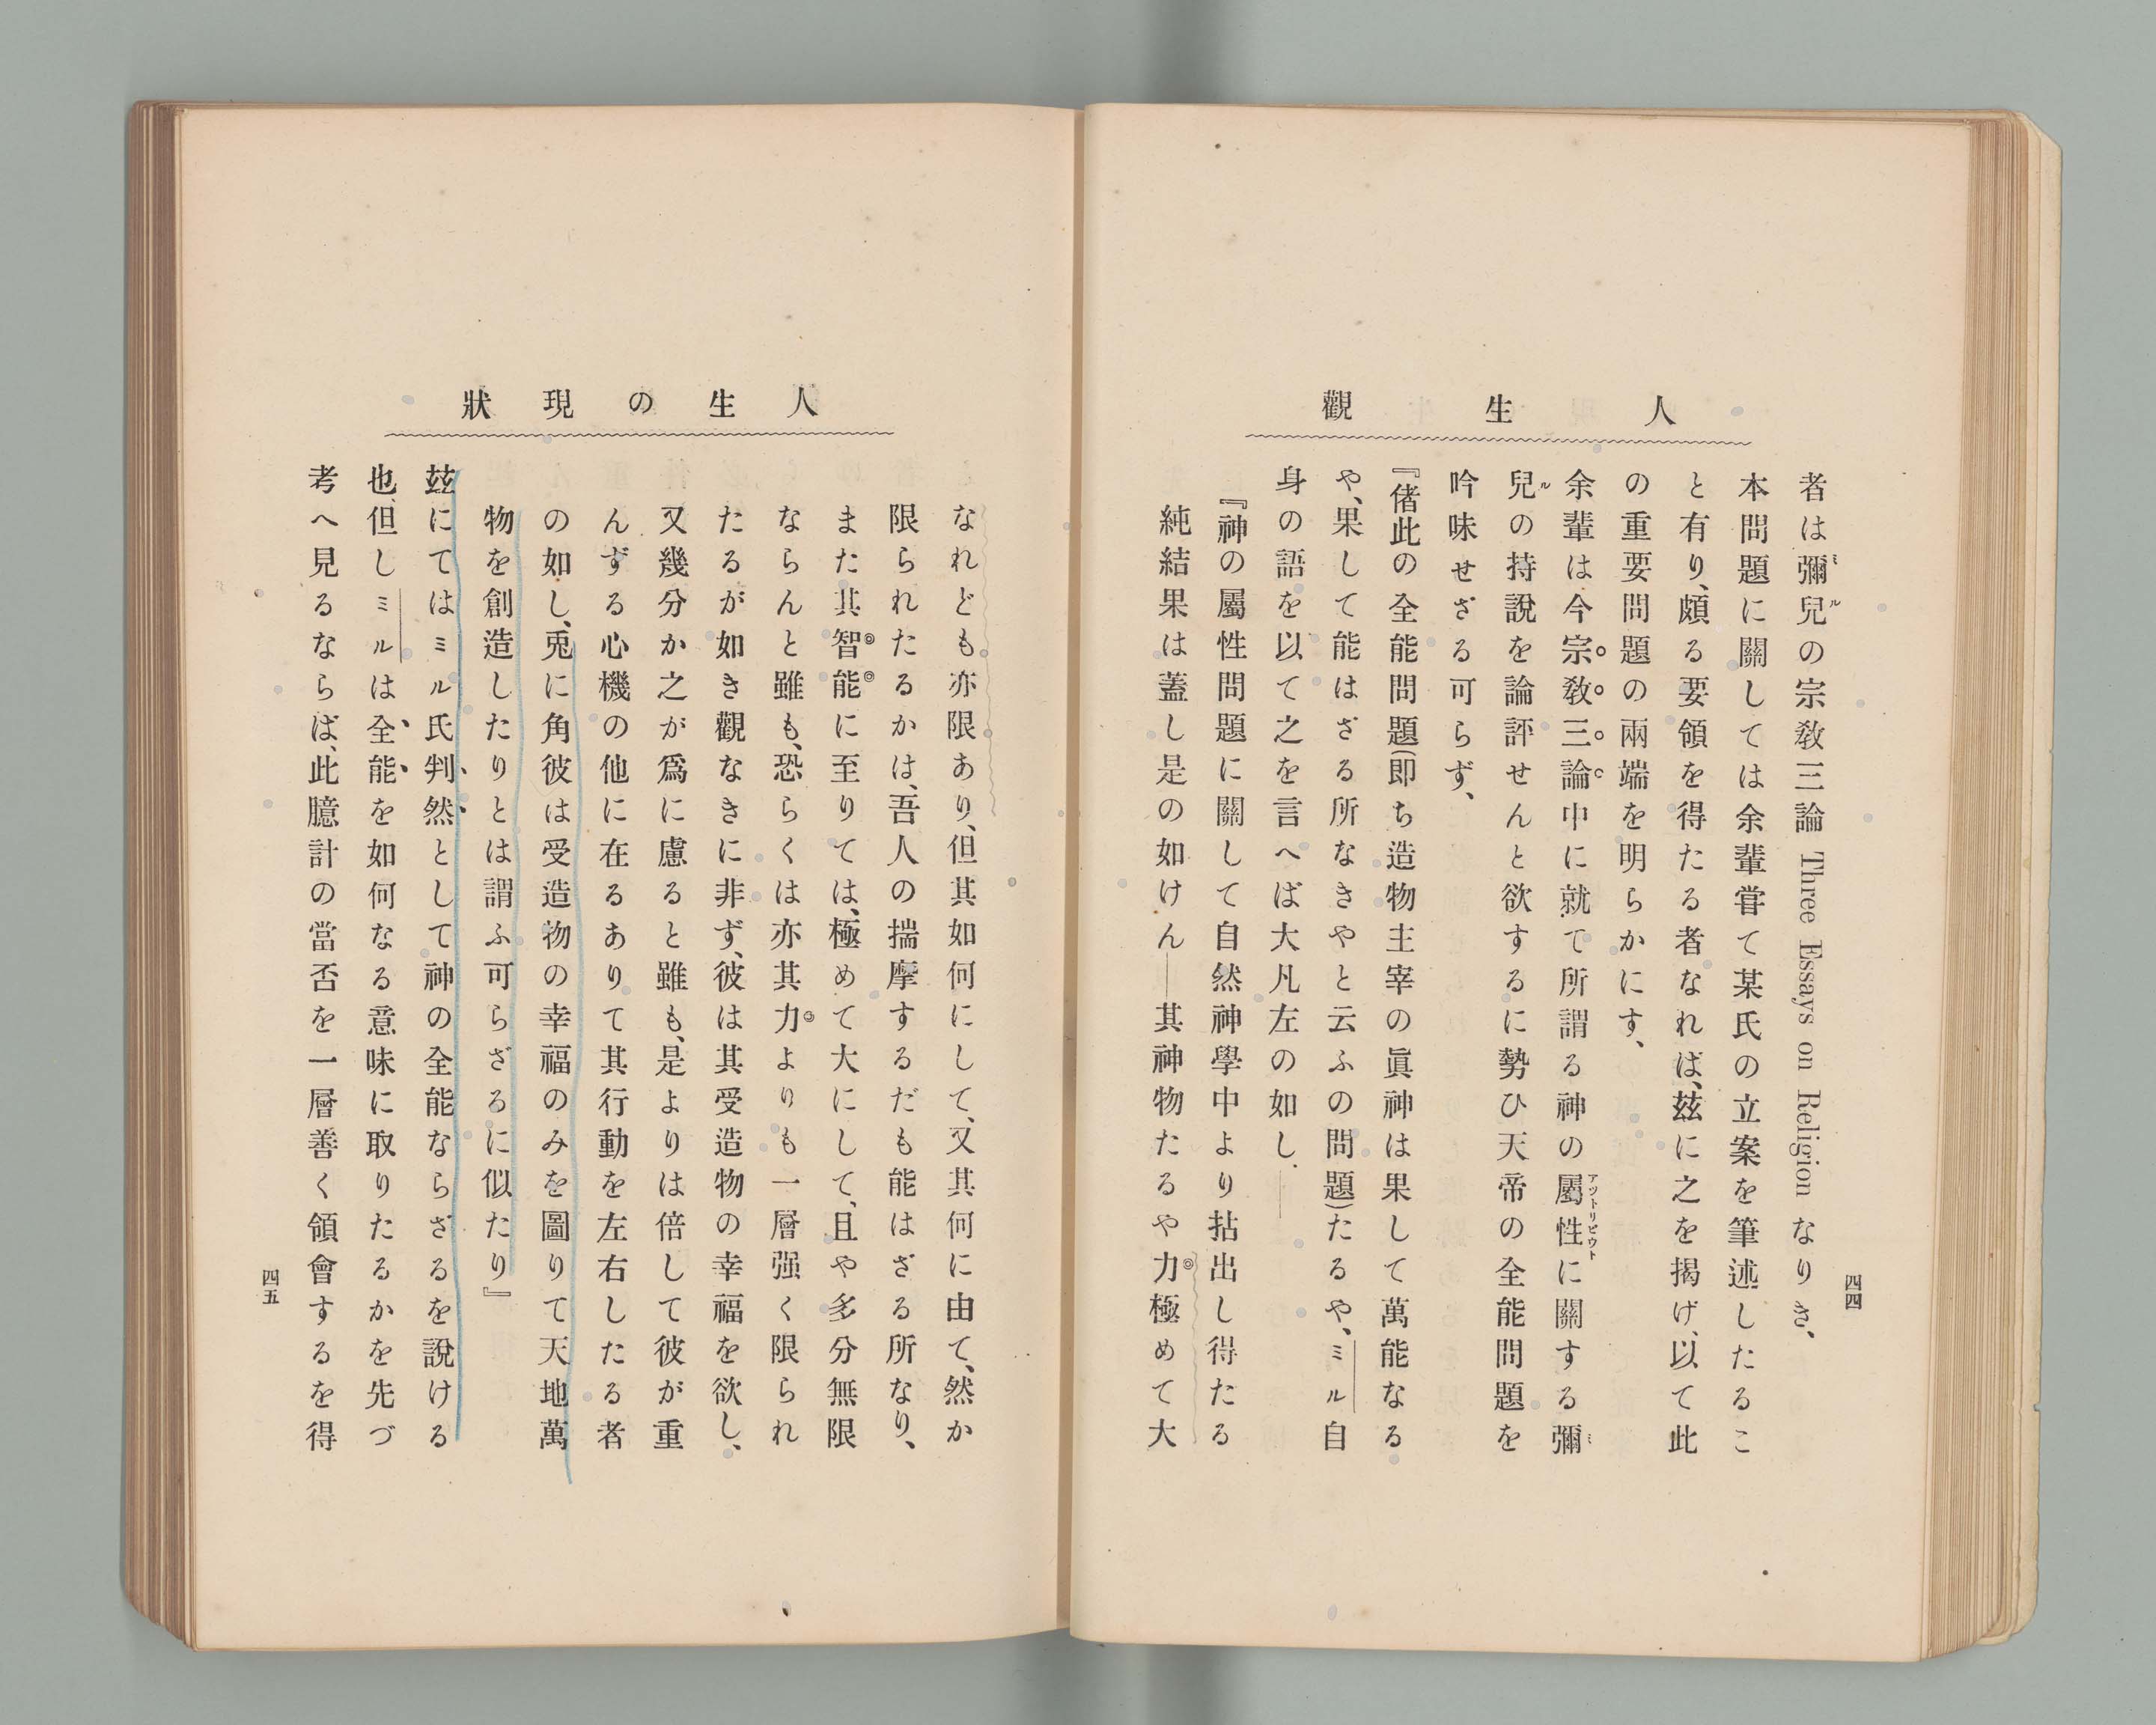 人生觀
四四
者は彌兒の宗敎三論 Three Essays on Religion なりき、
本問題に關しては余輩甞て某氏の立案を筆述したるこ
と有り、頗る要領を得たる者なれば、玆に之を揭げ、以て此
の重要問題の兩端を明らかにす、
余輩は今宗敎三論中に就て所謂る神の屬性に關する彌
兒の持說を論評せんと欲するに勢ひ天帝の全能問題を
吟味せざる可らず、
『偖此の全能問題(即ち造物主宰の眞神は果して萬能なる
や、果して能はざる所なきやと云ふの問題)たるや、ミル自
身の語を以て之を言へば大凡左の如し.——
『神の屬性問題に關して自然神學中より拈出し得たる
純結果は蓋し是の如けん——其神物たるや力極めて大
人生の現狀
なれども亦限あり、但其如何にして、又其何に由て、然か
限られたるかは、吾人の揣摩するだも能はざる所なり、
また其智能に至りては、極めて大にして、且や多分無限
ならんと雖も、恐らくは亦其力よりも一層强く限られ
たるが如き觀なきに非ず、彼は其受造物の幸福を欲し、
又幾分か之が爲に慮ると雖も、是よりは倍して彼が重
んずる心機の他に在るありて其行動を左右したる者
の如し、兎に角彼は受造物の幸福のみを圖りて天地萬
物を創造したりとは謂ふ可らざるに似たり』
玆にてはミル氏判然として神の全能ならざるを說ける
也、但しミルは全能を如何なる意味に取りたるかを先づ
考へ見るならば、此臆計の當否を一層善く領會するを得
四五